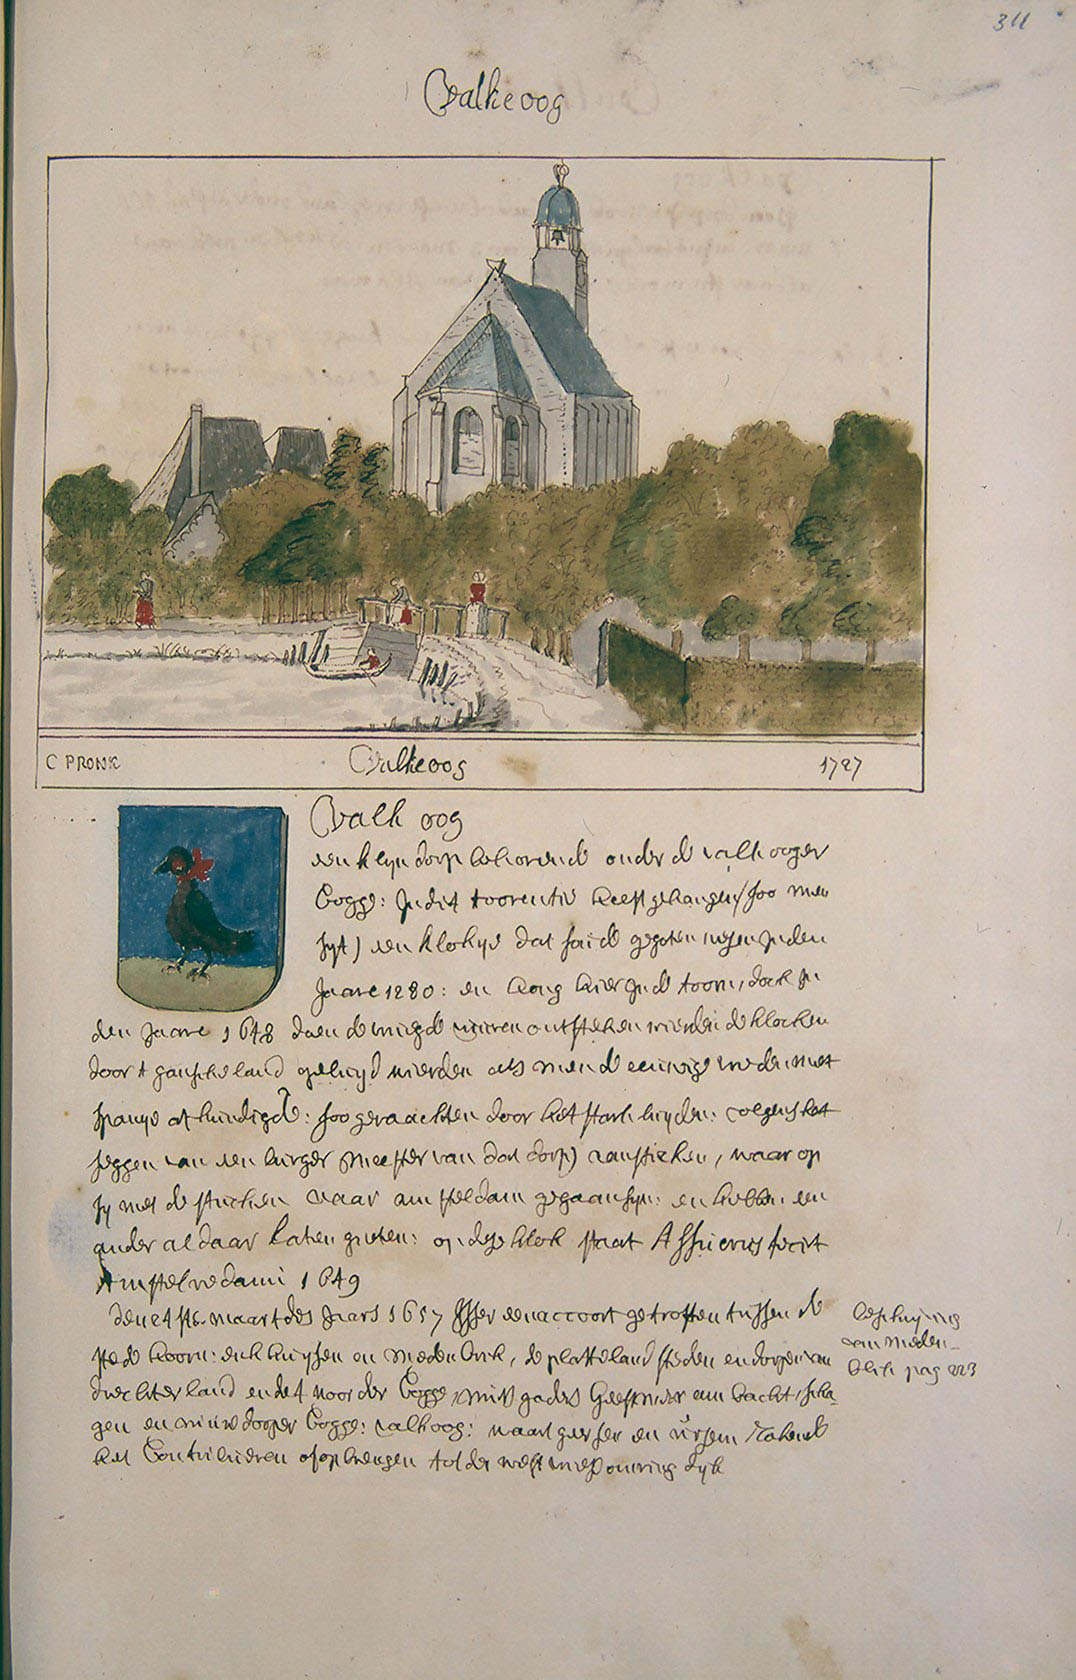 311
Valkeoog
C PRONK
Valkeoog
1727
Valk oog
een klijn dorp behorende onder de valk ooger
Cogge: In dit toorentie heeft gehangen (soo men
syt) een klokije dat soude gegoten wesen in den
Jaare 1280: en hong hier in de toorn, doch in
den Jaare 1648 doen de vreugde vuuren ontsteken wierden de klocken
door t gansche land geluyd wierden als men de eeuwige vrede met
spanije afkundigde: soo geraackten door het stark luyden: volgens het
seggen van een burger meester van dat dorp) aan sticken, waar op
sy met de sticken naar amsteldam gegaan syn: en hebben een
ander aldaar laten gieten: op dese klok staat Assuerus fecit
Amstelredami 1649
den 24 ste maart des Jaars 1657 isser een accoort getroffen tussen de
stede hoorn: enkhuysen en medenblick, de platte land steden en dorpen van
drechterland ende t noorder Cogge, mits gaders Geestmer am bacht, scha
gen en nieuwdorper Cogge: valkoog: en ursem
het Contribueren of opbrengen tot de west dyk
beschrijving
van meden-
blik pag 223